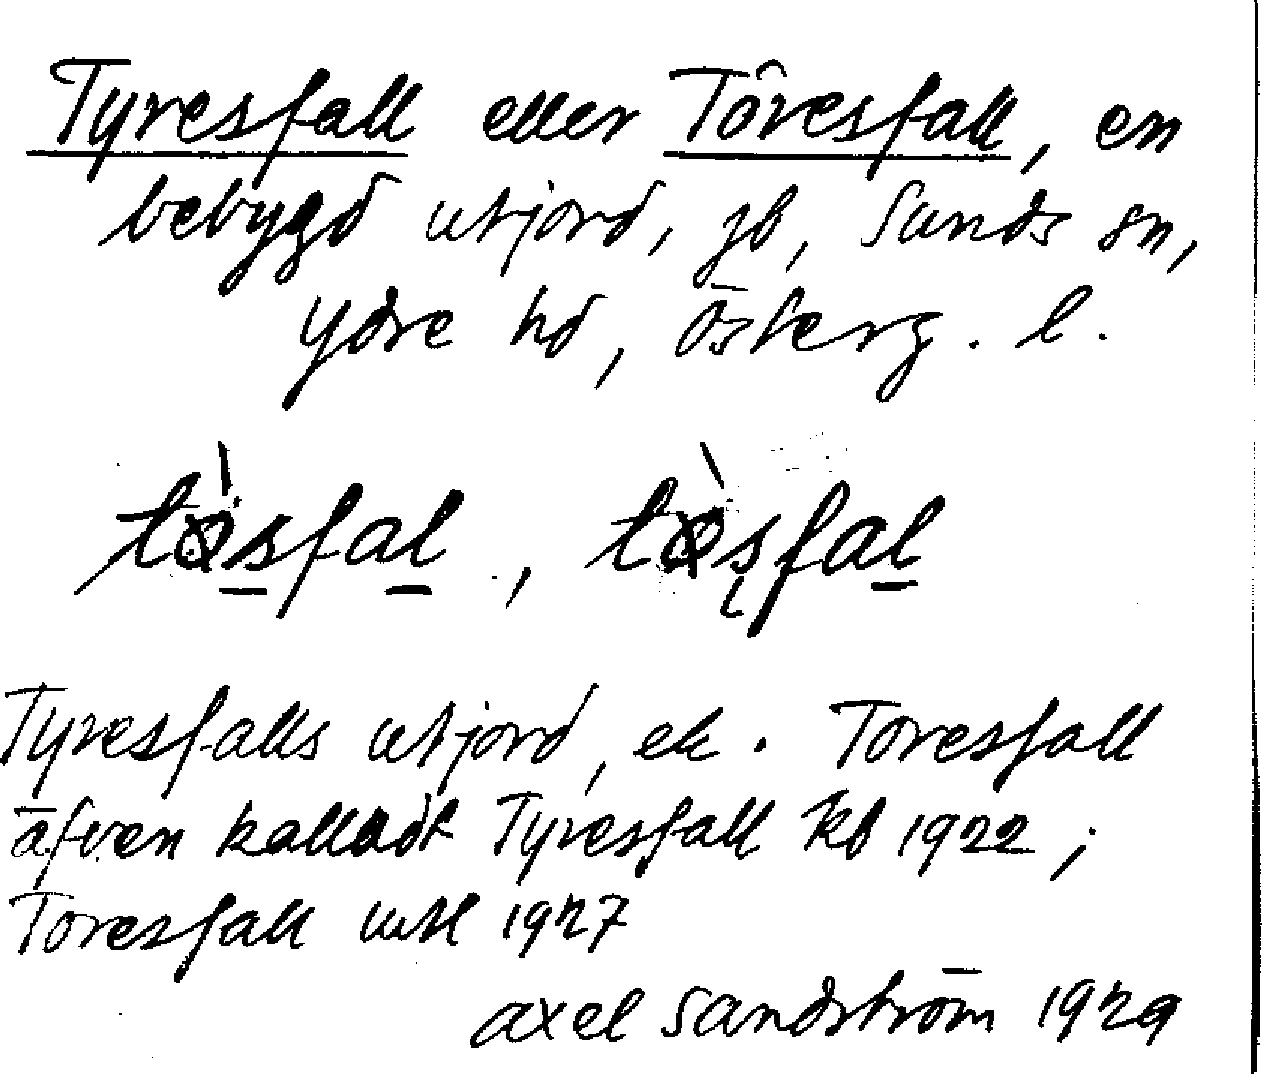 Tyresfall eller Tôresfall, en
bebygd utjord, jb, Sunds sn,
Ydre hd, Österg. l.
tø̀sfal, tø̀şfal
Tyresfalls utjord, ek. Toresfall
äfven kalladt Tyresfall kb 1922;
Toresfall mtl 1927
axel Sandström 1929